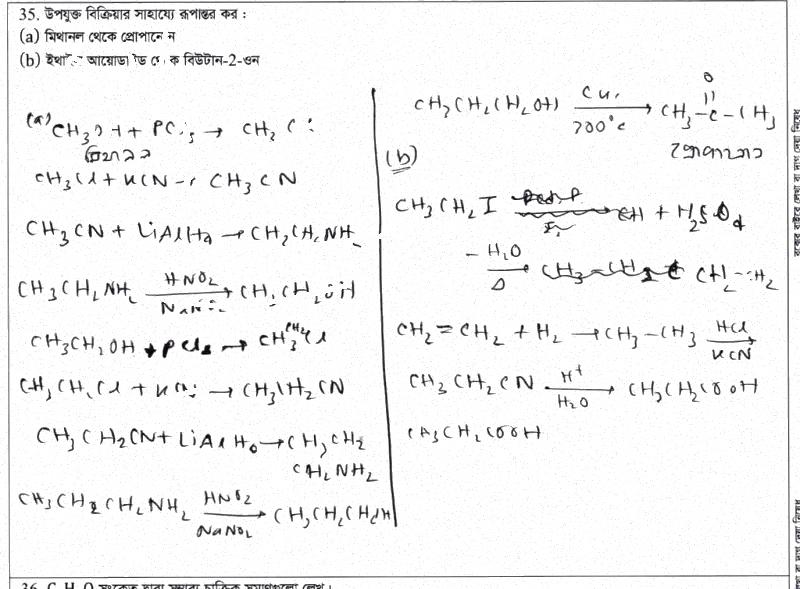 35. উপযুক্ত বিক্রিয়ার সাহায্যে রূপান্তর কর :
(a) মিথানল থেকে প্রোপানোন
(b) আয়োডাইড থেকে বিউটান-2-ওন
(a) CH₃OH + PCl₅ →
CH₃Cl + KCN → CH₃CN
CH₃CN + LiAlH₄ → CH₃CH₂NH₂
CH₃CH₂NH₂ HNO₂ → CH₃CH₂OH
CH₃CH₂OH + PCl₅ → CH₃CH₂Cl
CH₃CH₂Cl + KCN → CH₃CH₂CN
CH₃CH₂CN + LiAlH₄ → CH₃CH₂
CH₂NH₂
CH₃CH₂CH₂NH₂ HNO₂ NaNO₂ → CH₃CH₂CH₂OH
CH₃CH₂CH₂OH Cu, 300°c → CH₃-C-CH₃
O
(b)
CH₃CH₂I + H₂SO₄
-H₂O Δ → CH₂-CH₂
CH₂=CH₂ + H₂ → CH₃-CH₃ HCl KCN →
CH₃CH₂CN H⁺ H₂O → CH₃CH₂COOH
CH₃CH₂COOH